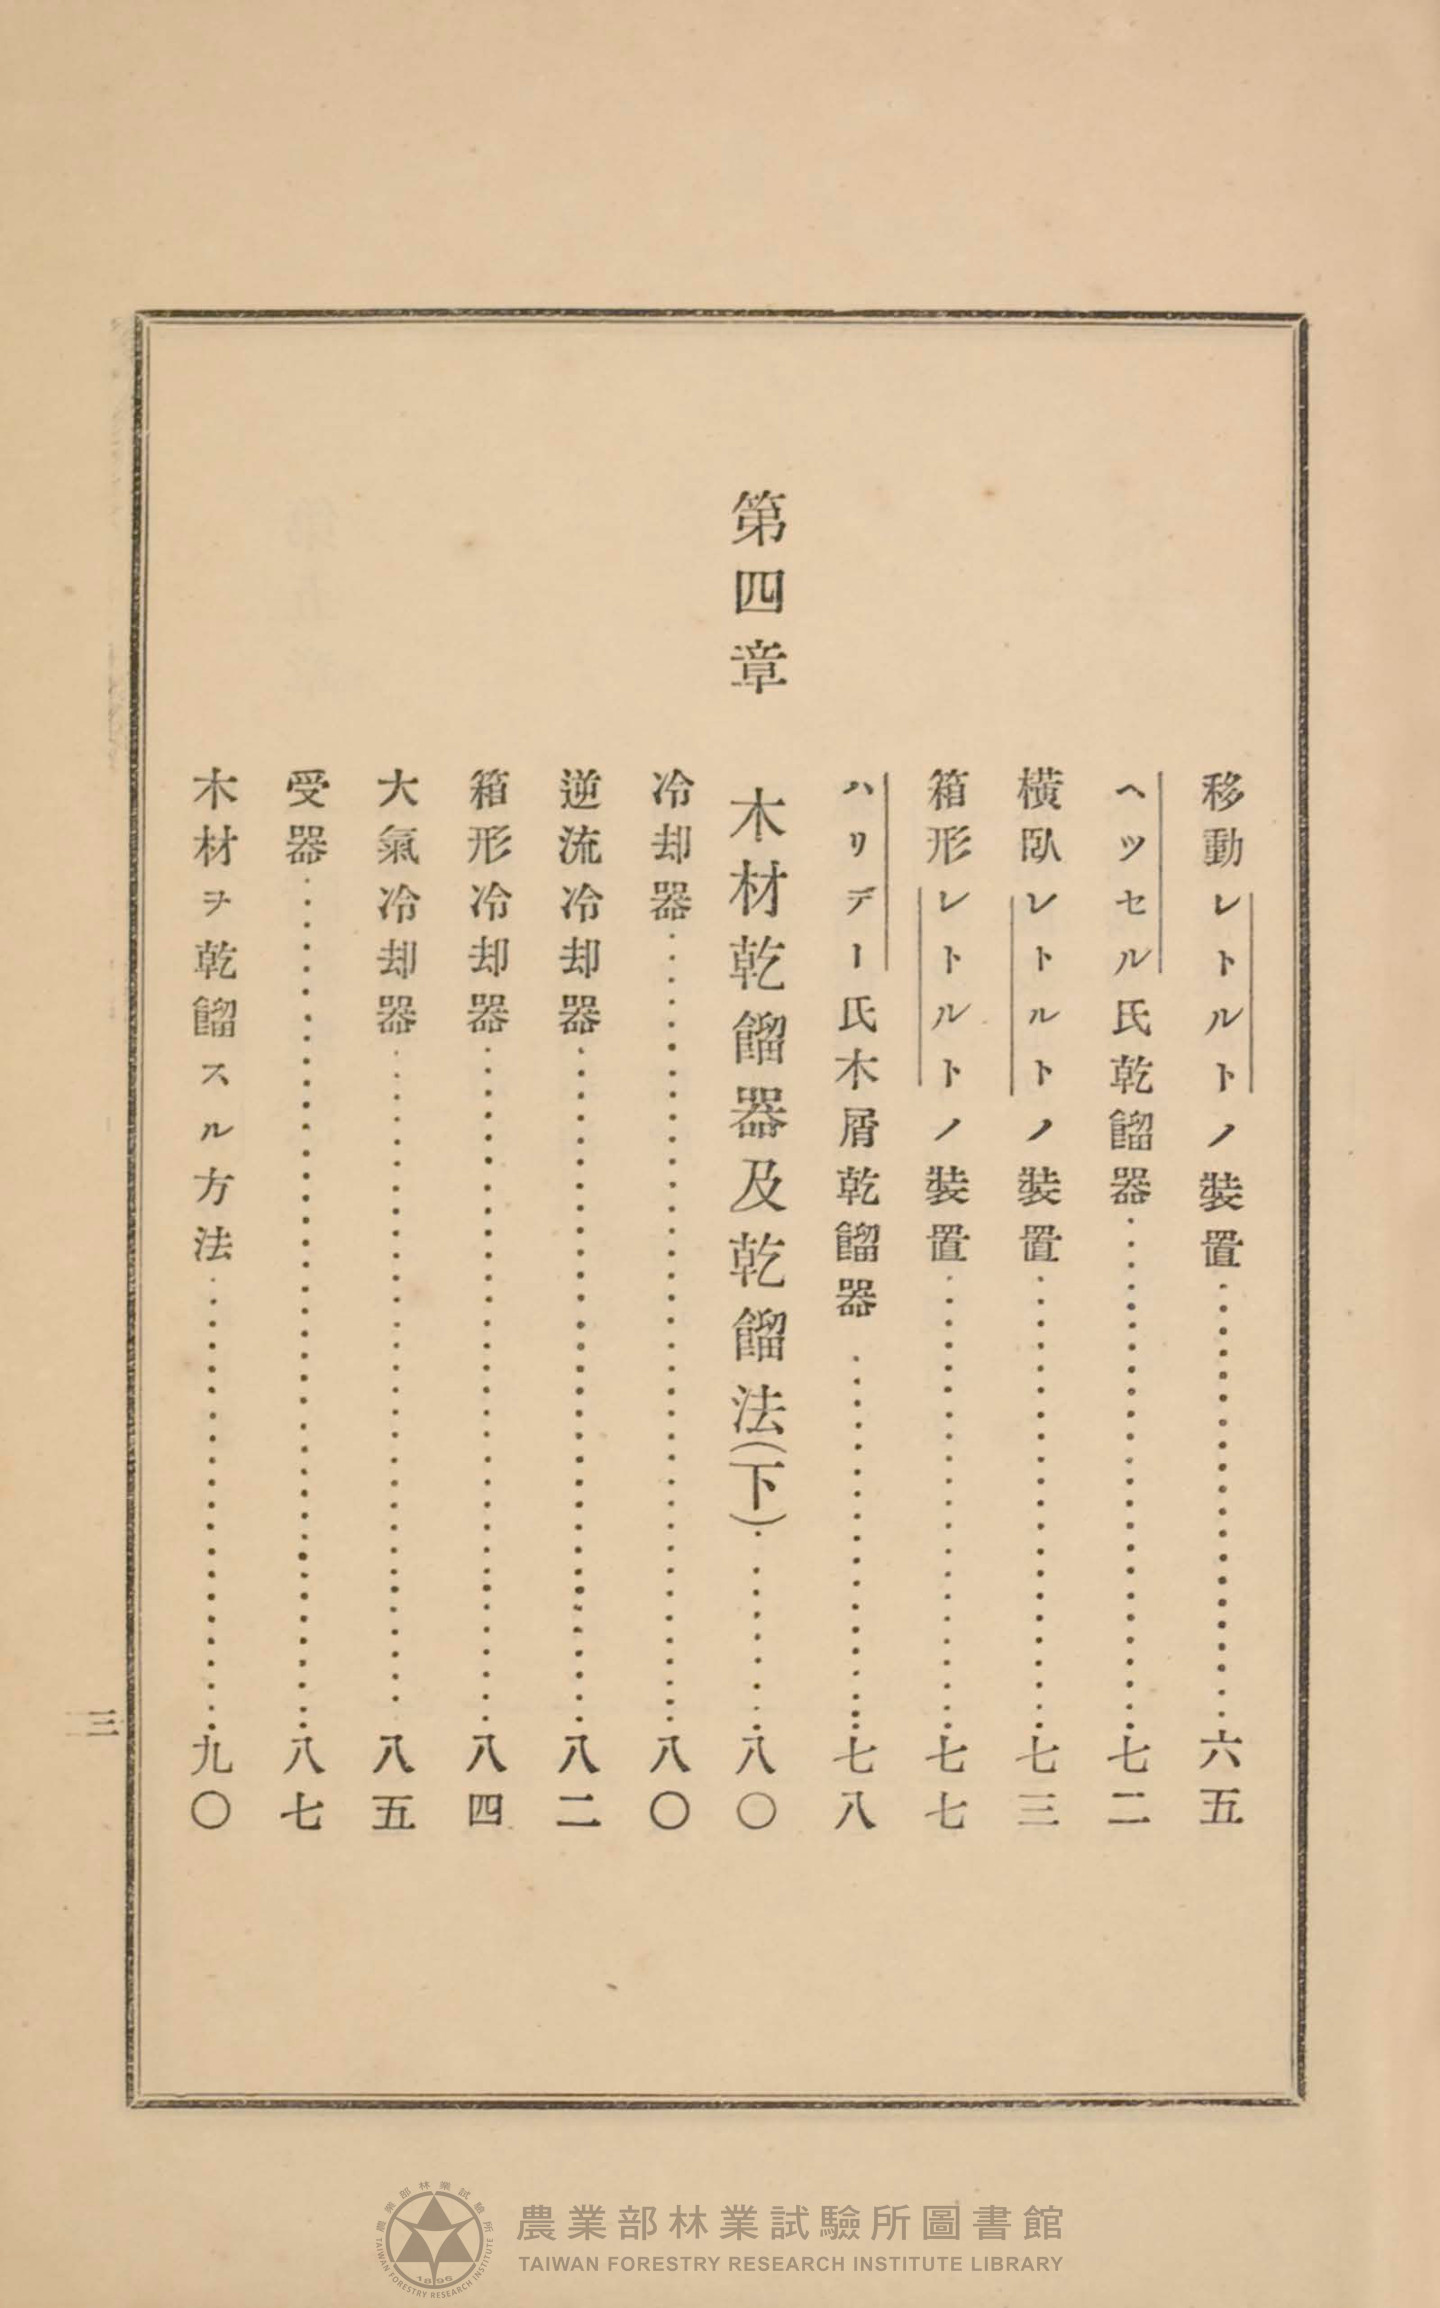 移動レトルトノ裝置……………六五
ヘツセル氏乾餾器……………七二
橫臥レトルトノ裝置……………七三
箱形レトルトノ裝置……………七七
ハリデー氏木屑乾餾器……………七八
第四章 木材乾餾器及乾餾法(下)……………八〇
冷却器……………八〇
逆流冷却器……………八二
箱形冷却器……………八四
大氣冷却器……………八五
受器……………八七
木材ヲ乾餾スル方法……………九〇
三
農業部林業試驗所圖書館
TAIWAN FORESTRY RESEARCH INSTITUTE LIBRARY
農業部林業試驗所
TAIWAN FORESTRY RESEARCH INSTITUTE
1896